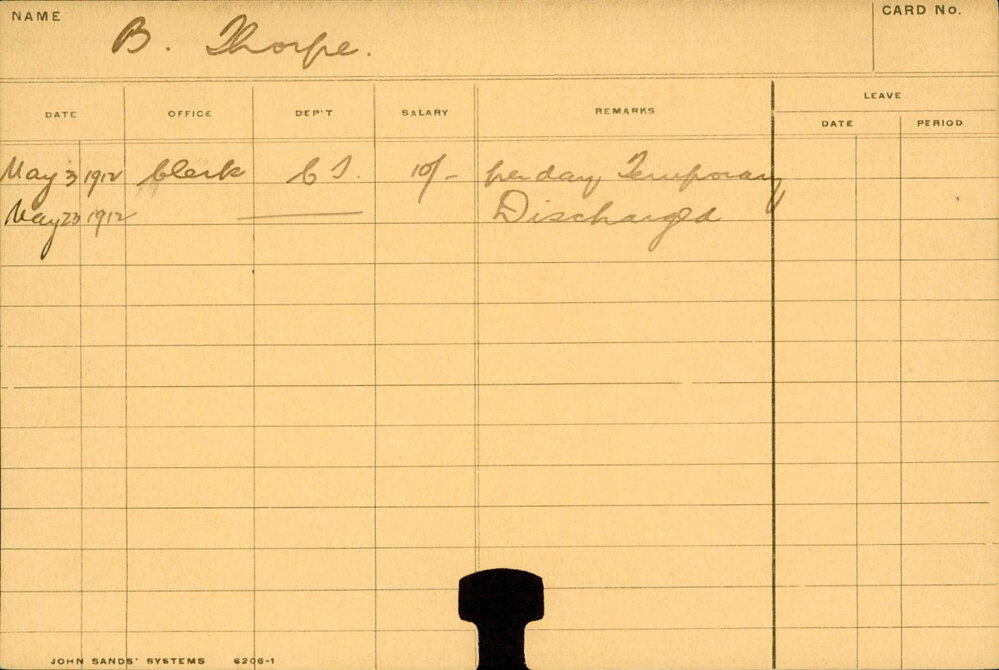 NAME B. Thorpe. CARD No.
LEAVE
DATE OFFICE DEP'T SALARY REMARKS DATE PERIOD
May 3 1912 Clerk C S. 10/- per day Temporary
May 23 1912 Discharged
JOHN SANDS' SYSTEMS 6206-1